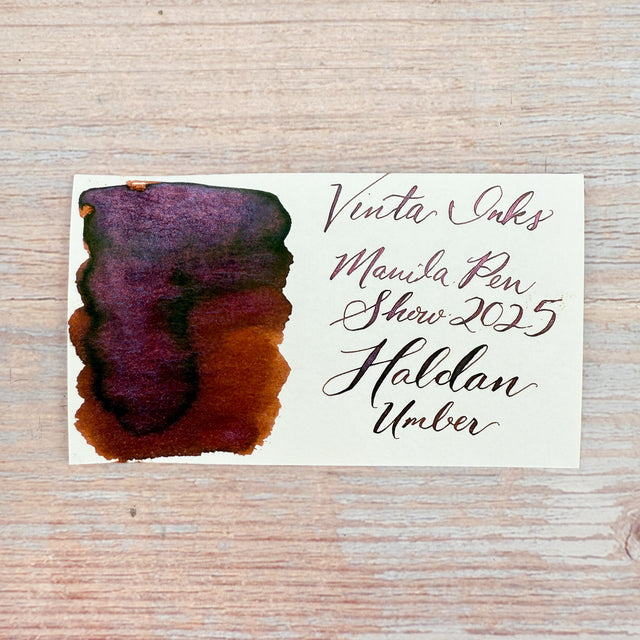 Vinta Inks
Manila Pen
Show 2025
Haldan
Umber